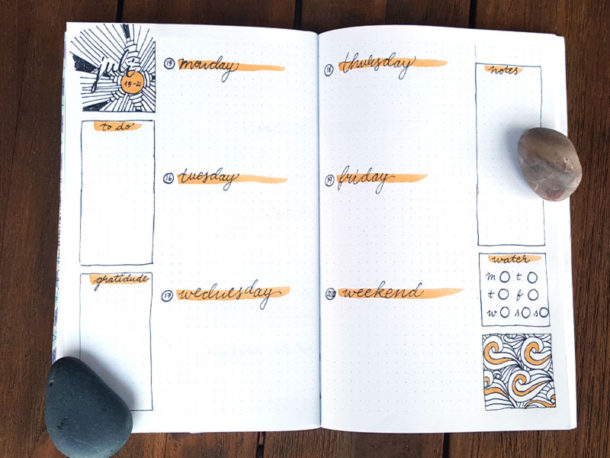 july
15-21
to do
gratidude
15 monday
16 tuesday
17 wednesday
18 thursday
19 friday
weekend
notes
water
m t
t f
w s s